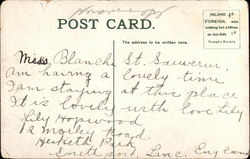 POST CARD.
The address to be written here.
INLAND
FOREIGN,
Miss Blanch St.
Am having a lovely time
I am staying at this place
It is lovely with love Lily
Lily Hopwood
12 Morley Road.
Hesketh Park
Southport, Lanc. England